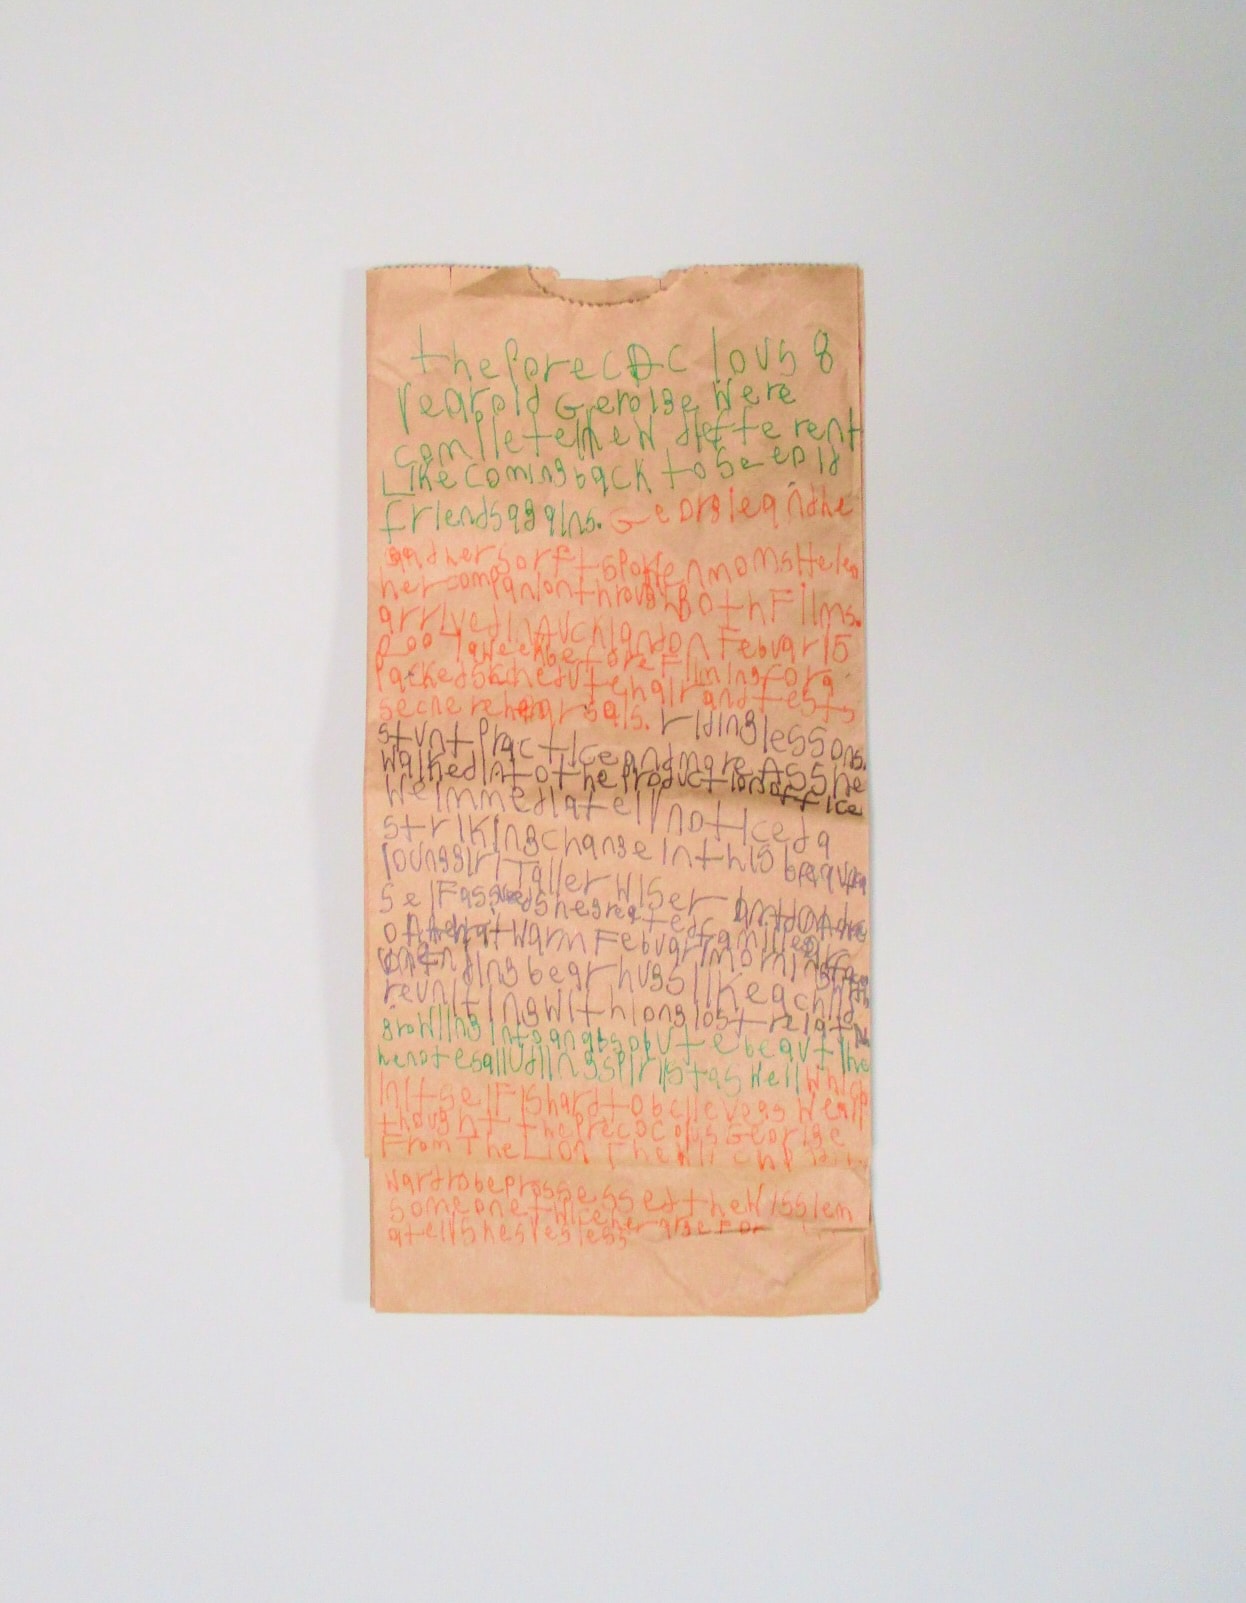 the porecoc lous 8
Year old Georige Were
completelNeW different
Like coming back to see old
friends agains. Georgie and he
and her sorft spoken moms Helen
her companion through Both Films.
arrived in Auckland on Febuar 15
2004 a week before Filming For a
Packed skhedule hair and tests
secne rehearsals. riding lessons.
stunt practice and more Ass he
walked into the production office
We immediatelly noticed a
striking change in this
Youns girl Taller Wiser and
self she greeted
that Warn Febuary morning
ding bear hugs like a child
reuniting with long lost relat
growling into an absoulute beautihe
he notes alludling spirist as Well Which
in itself Is hard to believe as We all
thought the precocous Georige
From The Lion The
wardrobe prossessed the Wisslem
someone twice her age For
atelly shes les less